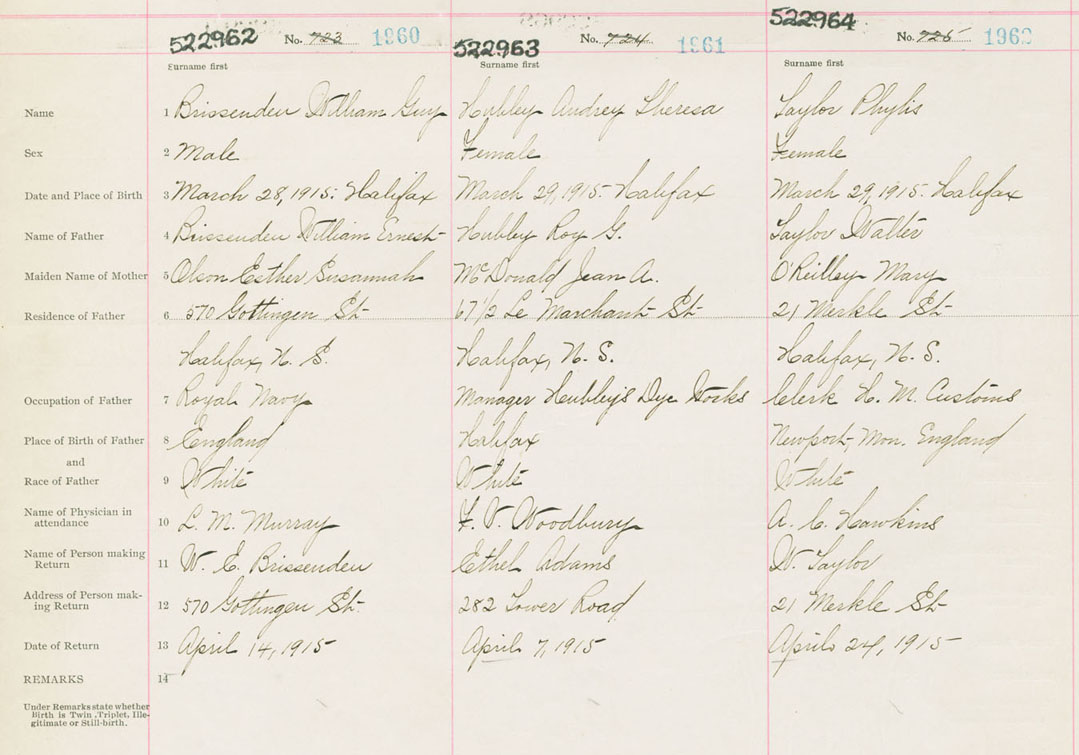 522962 No. 723 1960 522963 No. 724 1961 522964 No. 725 1962
Surname first Surname first Surname first
Name 1 Brissenden William Guy Hubley Audrey Theresa Taylor Phylis
Sex 2 Male Female Female
Date and Place of Birth 3 March 28, 1915. Halifax March 29, 1915. Halifax March 29, 1915. Halifax
Name of Father 4 Brissenden William Ernest Hubley Roy G. Taylor Walter
Maiden Name of Mother 5 Olson Esther Susannah McDonald Jean A. O'Reilley Mary
Residence of Father 6 570 Gottingen St. 67 1/2 Le Marchant St. 21 Merkle St.
Halifax, N. S. Halifax, N. S. Halifax, N. S.
Occupation of Father 7 Royal Navy Manager Hubley's Dye Works Clerk H. M. Customs
Place of Birth of Father 8 England Halifax Newport, Mon. England
and
Race of Father 9 White White White
Name of Physician in
attendance 10 L. M. Murray F. V. Woodbury A. C. Hawkins
Name of Person making
Return 11 W. E. Brissenden Ethel Adams W. Taylor
Address of Person mak-
ing Return 12 570 Gottingen St. 282 Tower Road 21 Merkle St.
Date of Return 13 April 14, 1915 April 7, 1915 April 24, 1915
REMARKS 14
Under Remarks state whether
Birth is Twin, Triplet, Ille-
gitimate or Still-birth.